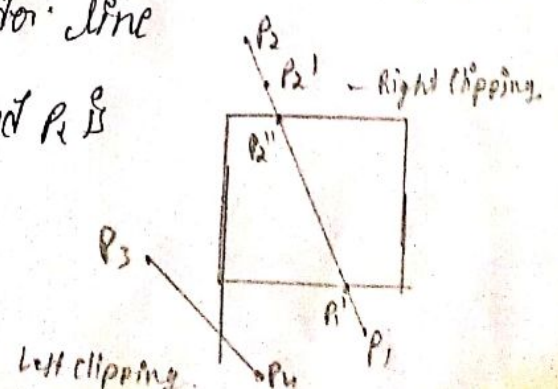 line
P2
P2'
- Right Clipping.
P2"
P3
P1'
P1
Left Clipping.
P4